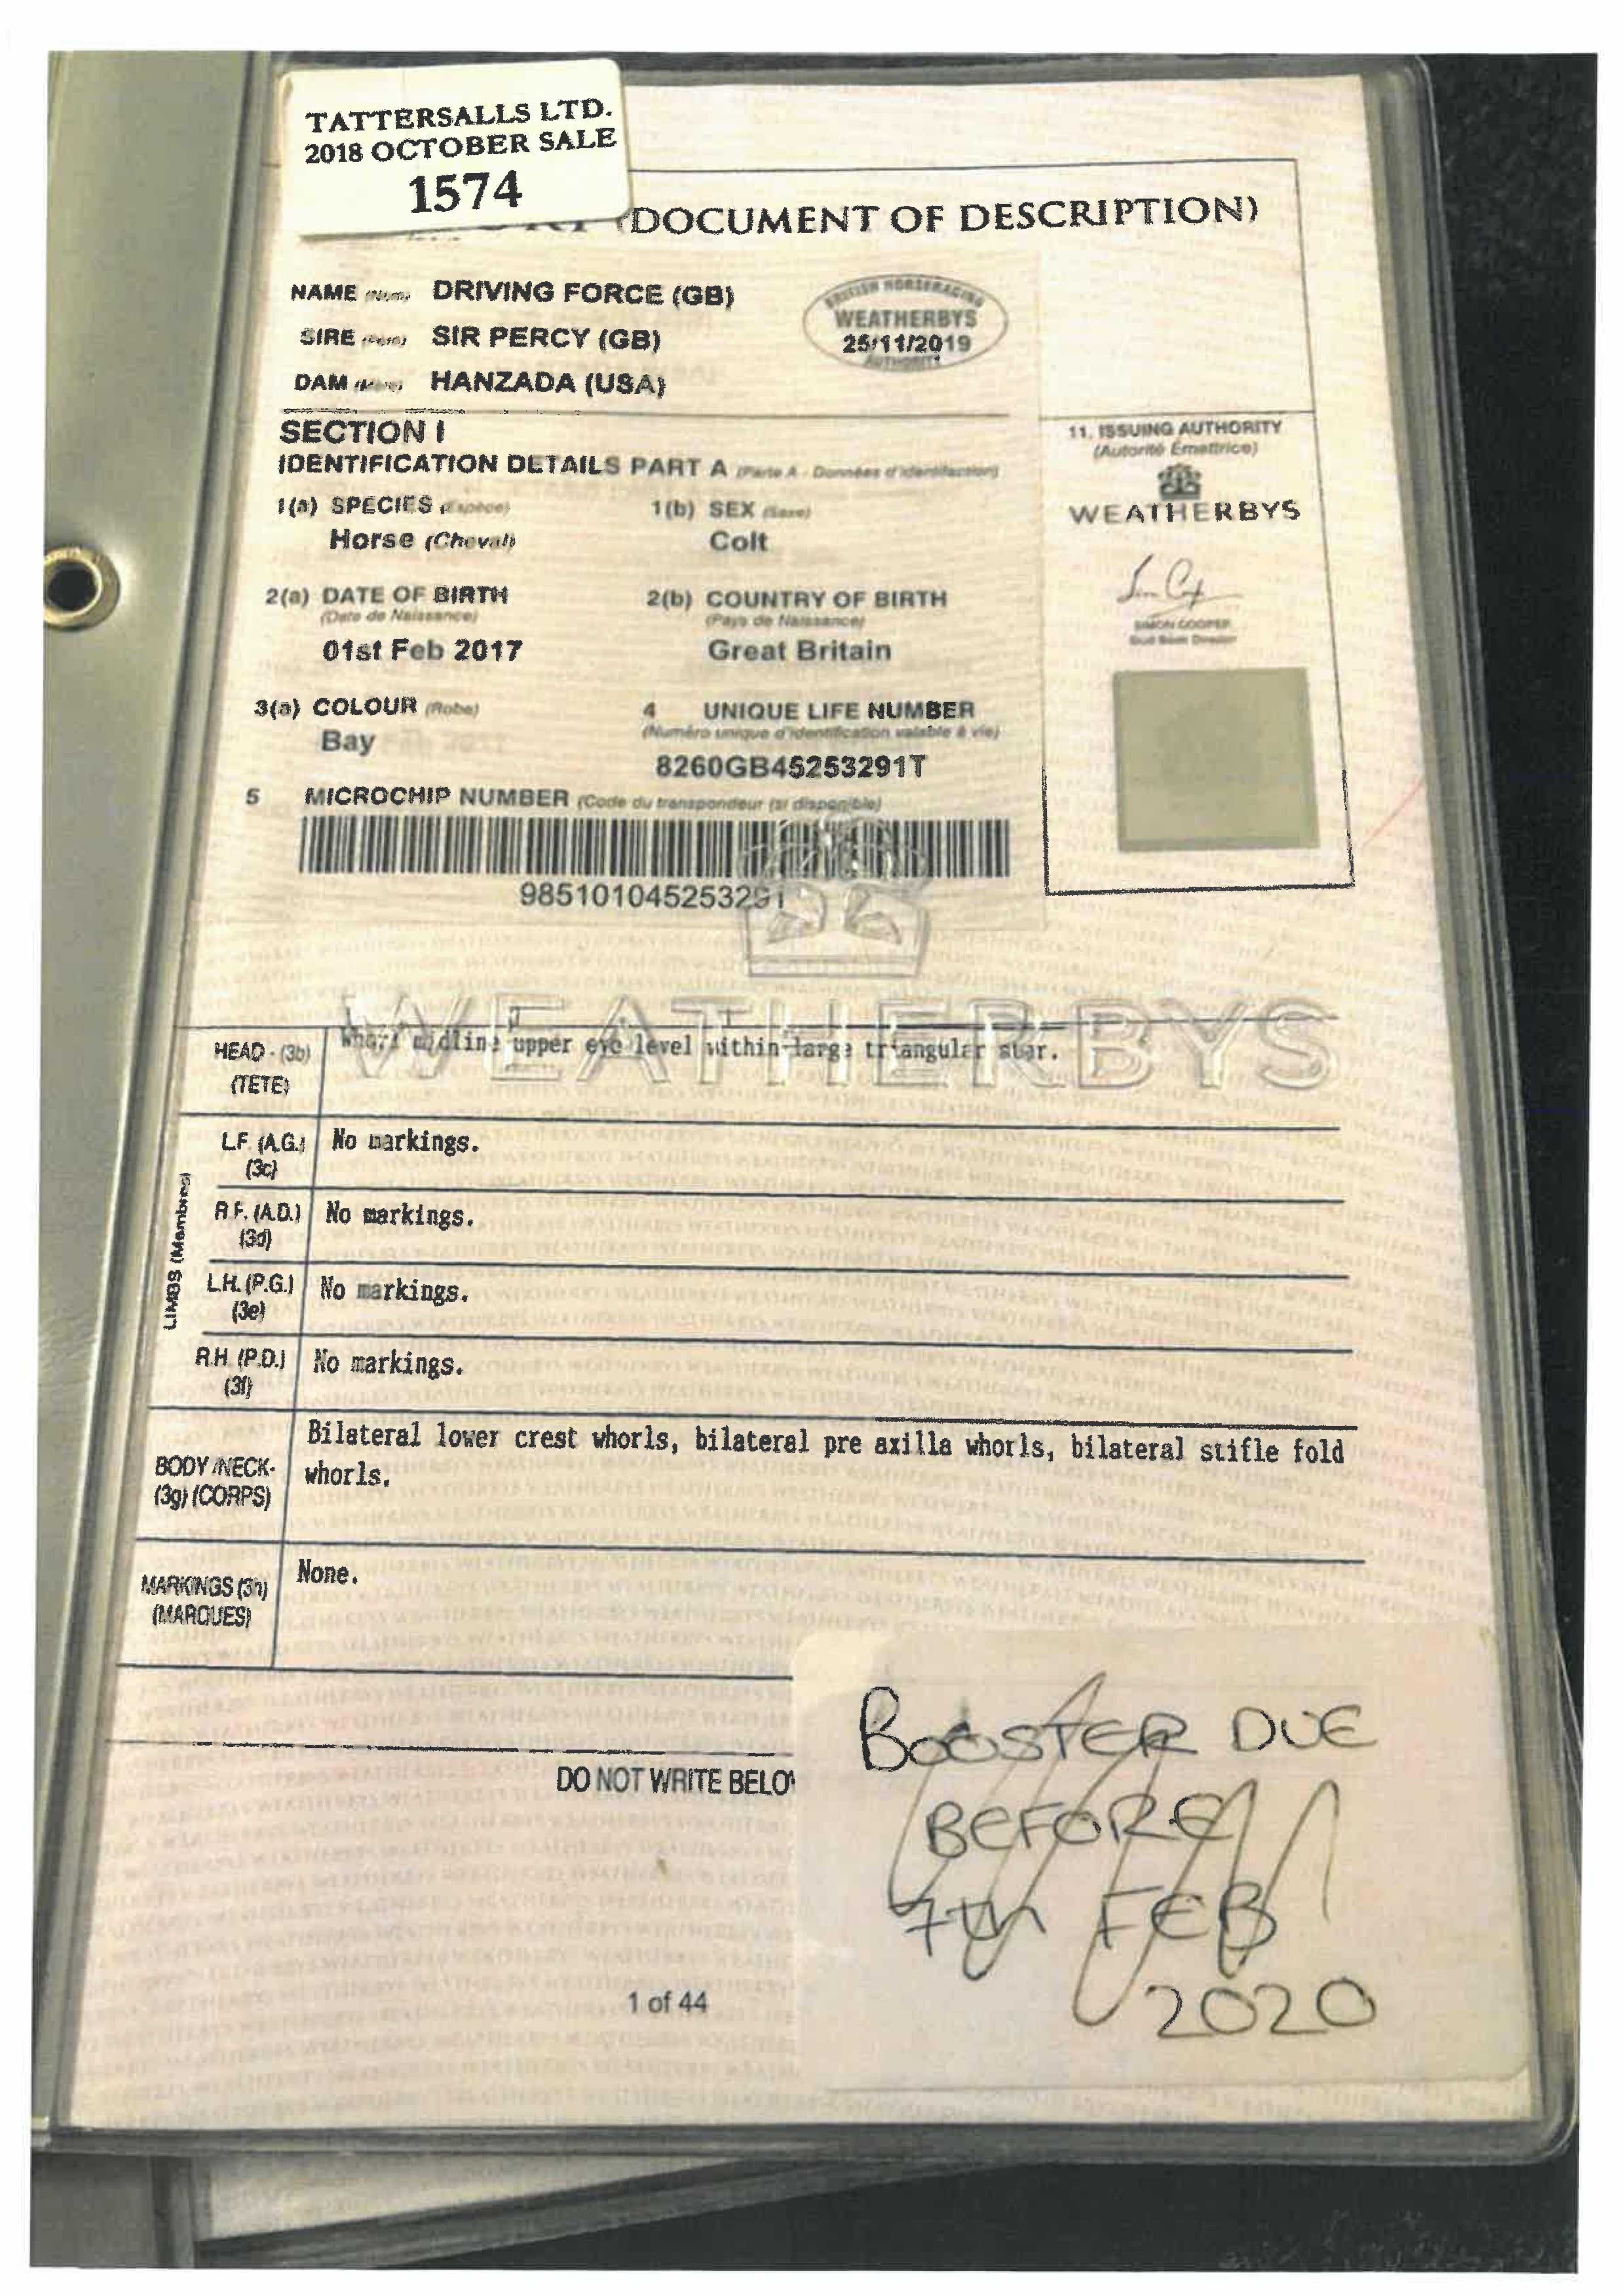 TATTERSALLS LTD.
2018 OCTOBER SALE
1574
(DOCUMENT OF DESCRIPTION)
NAME (Nom) DRIVING FORCE (GB)
SIRE (Père) SIR PERCY (GB)
DAM (Mère) HANZADA (USA)
BRITISH HORSERACING
WEATHERBYS
25/11/2019
AUTHORITY
SECTION I
IDENTIFICATION DETAILS PART A (Partie A - Données d'identification)
1(a) SPECIES (Espèce)
Horse (Cheval)
1(b) SEX (Sexe)
Colt
2(a) DATE OF BIRTH
(Date de Naissance)
01st Feb 2017
2(b) COUNTRY OF BIRTH
(Pays de Naissance)
Great Britain
3(a) COLOUR (Robe)
Bay
4 UNIQUE LIFE NUMBER
(Numéro unique d'identification valable à vie)
8260GB45253291T
5 MICROCHIP NUMBER (Code du transpondeur (si disponible)
985101045253291
11. ISSUING AUTHORITY
(Autorité Émettrice)
WEATHERBYS
SIMON COOPER
Stud Book Director
WEATHERBYS
HEAD - (3b)
(TETE)
Whorl midline upper eye level within large triangular star.
LIMBS (Membres)
L.F. (A.G.)
(3c)
No markings.
R.F. (A.D.)
(3d)
No markings.
L.H. (P.G.)
(3e)
No markings.
R.H. (P.D.)
(3f)
No markings.
BODY/NECK-
(3g) (CORPS)
Bilateral lower crest whorls, bilateral pre axilla whorls, bilateral stifle fold
whorls.
MARKINGS (3h)
(MARQUES)
None.
DO NOT WRITE BELO
BOOSTER DUE
BEFORE
7th FEB
2020
1 of 44